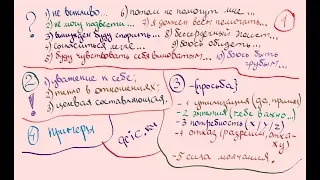 1) не вежливо...
2) не могу подвести...
3) вынужден буду спорить...
4) согласиться легче...
5) буду чувствовать себя виноватым...
6) потом не помогут мне...
7) я должен всем помогать...
8) бессердечный эгоист...
9) боюсь обидеть...
10) боюсь быть грубым...
1
2
1) уважение к себе;
2) тепло в отношениях;
3) целевая составляющая.
3
- [просьба]
-1 утилизация (да, прямо)
-2 эмпатия (тебе важно...)
-3 потребность (x/y/z)
-4 отказ
-5 сила молчания.
4 примеры